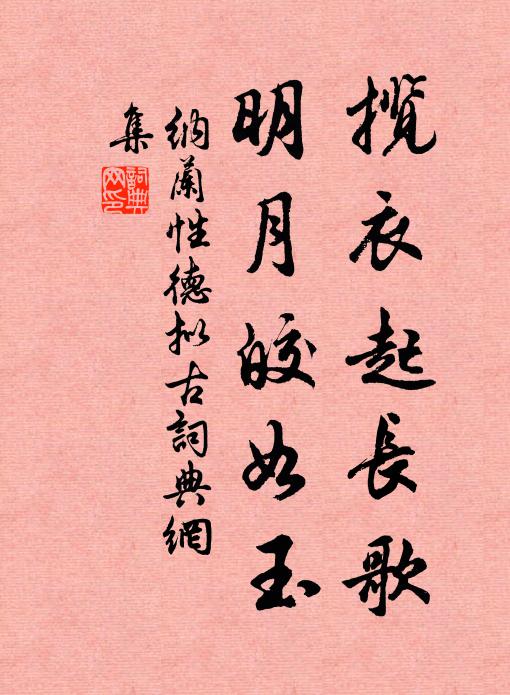 攬衣起長歌
明月皎如玉
納蘭性德擬古詞典網
集
詞典
网印